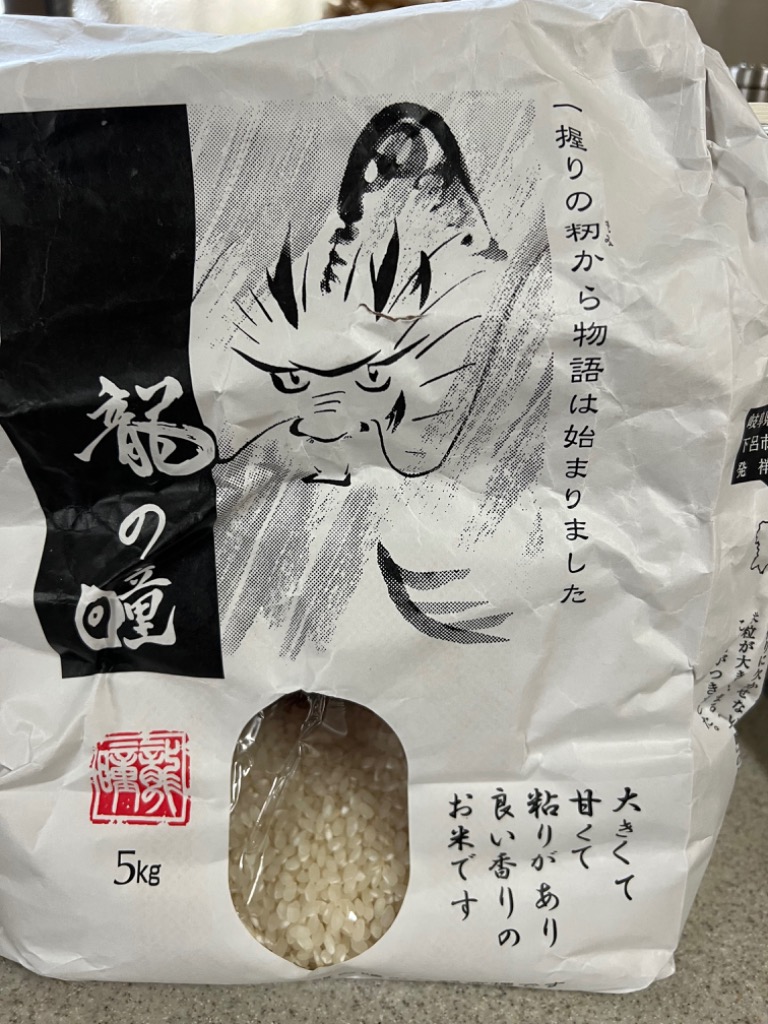 一握りの籾から物語は始まりました
龍の瞳
龍の瞳
5kg
大きくて
甘くて
粘りがあり
良い香りの
お米です
下呂市
発祥